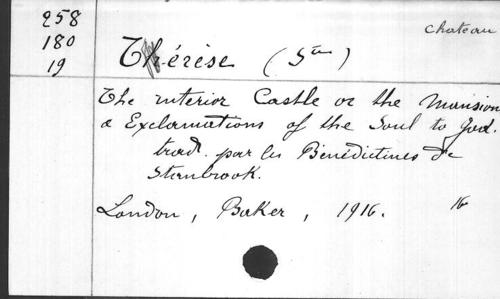 258
180
19
chateau
Thérèse (Ste)
The interior Castle or the Mansion
& Exclamations of the Soul to God.
trad. par les Benedictines de
Stanbrook.
London, Baker, 1916. 16